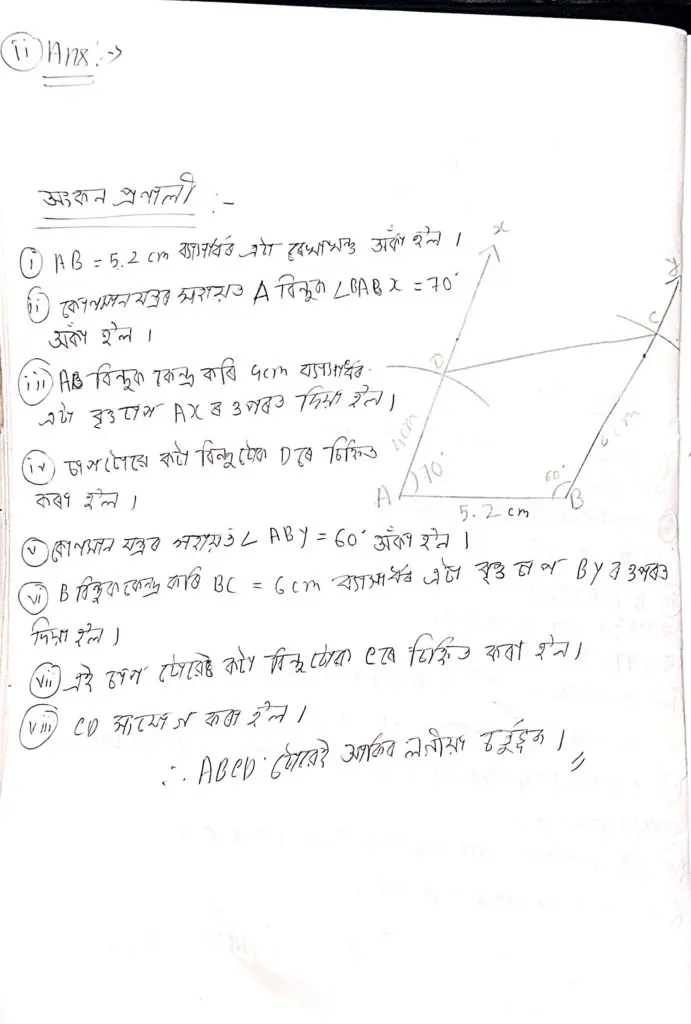 ii Ans :→
অংকন প্ৰণালী :-
i AB = 5.2 cm ব্যাসাৰ্ধৰ এটা ৰেখাখণ্ড অঁকা হ'ল ।
ii কোণমান যন্ত্ৰৰ সহায়ত A বিন্দুত ∠BABX = 70°
অঁকা হ'ল ।
iii AB বিন্দুক কেন্দ্ৰ কৰি 4cm ব্যাসাৰ্ধৰ
এটা বৃত্তচাপ AX ৰ ওপৰত দিয়া হ'ল ।
iv চাপটোৱে কটা বিন্দুটোক D ৰে চিহ্নিত
কৰা হ'ল ।
v কোণমান যন্ত্ৰৰ সহায়ত ∠ ABY = 60° অঁকা হ'ল ।
vi B বিন্দুক কেন্দ্ৰ কৰি BC = 6cm ব্যাসাৰ্ধৰ এটা বৃত্ত চাপ BY ৰ ওপৰত
দিয়া হ'ল ।
vii এই চাপ কটা বিন্দুটোক C ৰে চিহ্নিত কৰা হ'ল ।
viii CD সংযোগ কৰা হ'ল ।
∴ ABCD টোৱেই আঁকিব লগীয়া চতুৰ্ভুজ ।
x
y
C
D
4cm
6 cm
70°
60°
A
B
5.2 cm